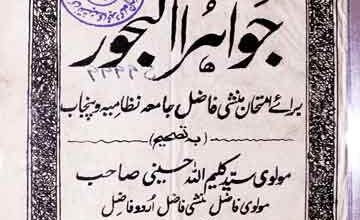 جواہر البحور
برائے امتحان منشی فاضل جامعہ نظامیہ و پنجاب
(بہ تصحیح)
مولوی سید کلیم اللہ حسینی صاحب
مولوی فاضل منشی فاضل اردو فاضل